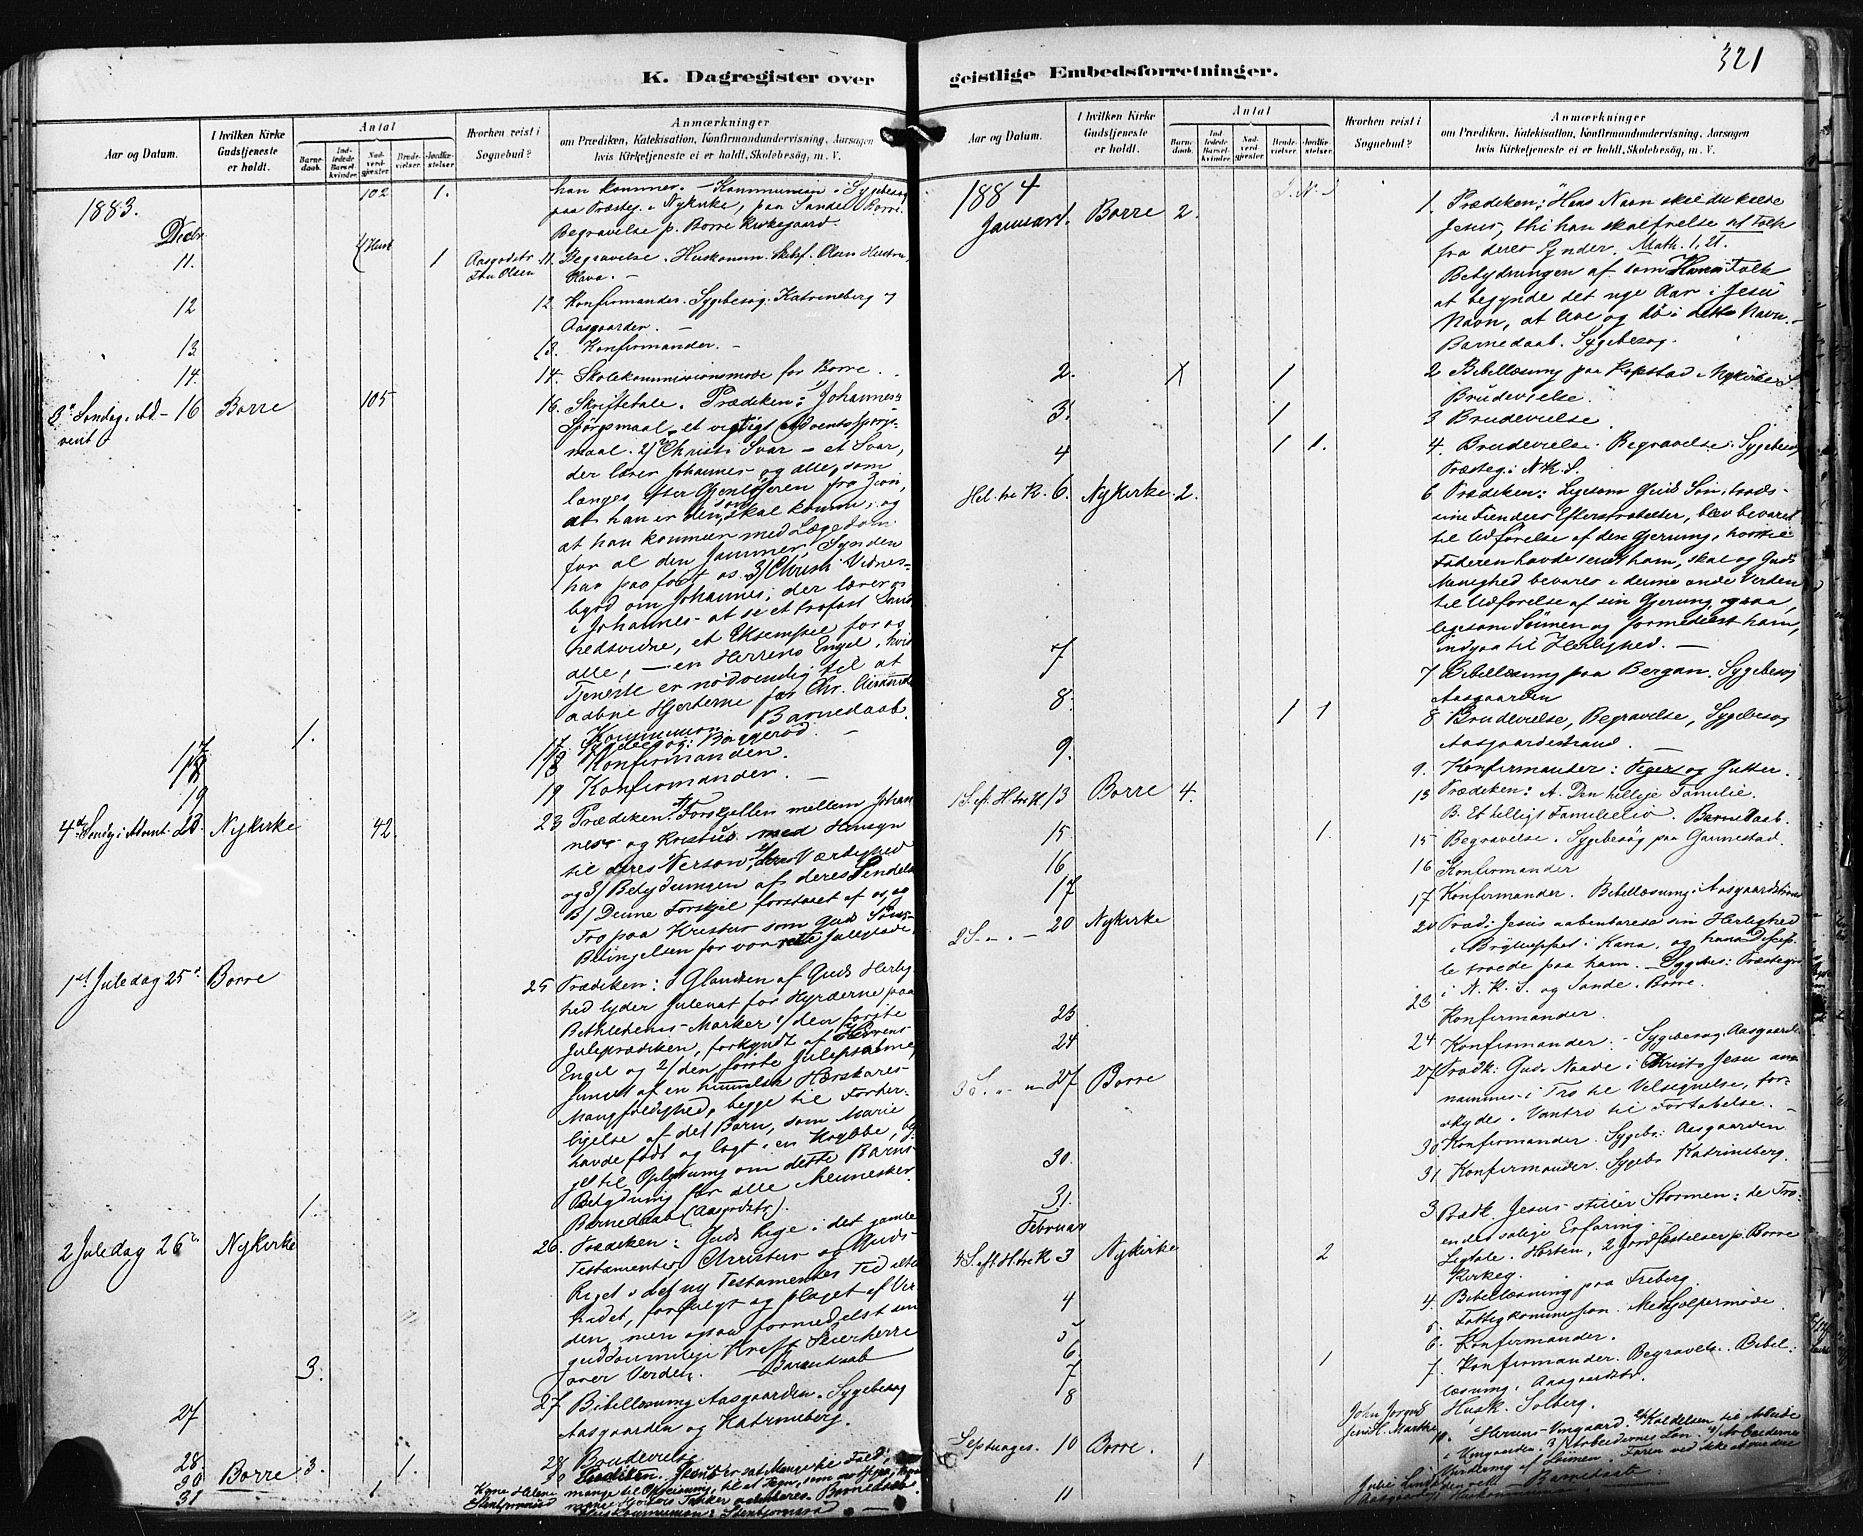 321
K. Dagregister over geistlige Embedsforretninger.
Aar og Datum.
I hvilken Kirke Gudstjeneste er holdt.
Antal
Barnedaab.
Indledede Barselkvinder.
Nadverdgjester
Brudevielser
Jordfæstelser
Hvorhen reist i Sognebud?
Anmærkninger
om Prædiken, Katekisation, Konfirmandundervisning, Aarsagen
hvis Kirketjeneste ei er holdt, Skolebesøg, m. V.
1883.
102 1. han kommer. - Kommunion. Sygebesøg
paa Præsteg. i Nykirke, paa Sande i Borre.
Begravelse p. Borre Kirkegaard.
Decbr.
11. 1 11. Begravelse. Huskomm. Olsen Hustru
12 12. Konfirmander. Sygebesøg: Katrineberg
Aasgaarden. -
13. 13. Konfirmander. -
14. 14. Skolekommissionsmøde for Borre.
3die Søndag i Advent 16 Borre 105 16. Skriftetale. Prædiken: Johannes's
Spørgsmaal, et vigtigt Adventsspørgs-
maal. 2/ Christi Svar - et Svar,
der lærer Johannes og alle, som
længes efter Gjenløseren fra Zion,
at han er den, som skal komme, og
at han kommer med Lægedom
for al den Jammer, Synden
har paaført os. 3/ Christi Vidnes-
byrd om Johannes, der lærer os
i Johannes at se et trofast Sand-
hedsvidne, et Eksempel for os
alle, - en Herrens Engel, hvis
Tjeneste er nødvendig til at
aabne Hjerterne for Chr.
1. Kommunion. Barnedaab.
17 17. Sygebesøg: Borgerød. -
18 18 Konfirmander.
19 19 Konfirmander. -
4de Søndag i Advent. 23. Nykirke 42. 23 Prædiken: Forskjellen mellem Johan
nes og Kristus med Hensyn
til deres Person, deres Værdighed
og 3/ Betydningen af deres Sendelse
B/ Denne Forskjel forstaaet af os, og
Tro paa Kristus som Guds Søn,
Betingelsen for vor rette Juleglæde.
1st Juledag 25de Borre 25 Prædiken: Glandsen af Guds Herlig
hed lyder Julenat for Hyrderne paa
Bethlehems Marker 1/ den første
Juleprædiken, forkyndt af Herrens
Engel og 2/ den første Julepsalme,
sunget af en himmelsk Hærskares
Mangfoldighed, begge til Forher-
ligelse af det Barn, som Marie
havde født og lagt i en Krybbe,
til Oplysning om dette Barns
Betydning for alle Mennesker.
1. Barnedaab (Aasgrdstr.)
2 Juledag 26de Nykirke 26. Prædiken: Guds Rige i det gamle
Testamente, Christus og Guds-
Riget i det ny Testamentes Tid altid
hadet, forfulgt og plaget af Ver
den, men ogsaa formedelst sin
guddommelige Kraft Seierherre
3. over Verden. Barnedaab
27 27 Bibellæsning Aasgaarden. Sygebesøg
Aasgaarden og Katrineberg.
28. 1. 28 Brudevielse
30 Borre 3. 30 Prædiken.
31 1
1884
Januar 1. Borre 2. 1. Prædiken: Hans Navn skal du kalde
Jesus, thi han skal frelse sit Folk
fra deres Synder. Math. 1, 21.
Betydningen af som Hans Folk
at begynde det nye Aar i Jesu
Navn, at leve og dø i dette Navn. -
Barnedaab. Sygebesøg.
2. 1 2 Bibellæsning paa Kopstad i Nykirke S.
Brudevielse.
3. 1 3 Brudevielse
4 1 1. 4. Brudevielse. Begravelse. Sygebesøg
Præsteg. i N.K.S.
Hel. tre K. 6. Nykirke 2. 6 Prædiken: Ligesom Guds Søn, trods
sine Fienders Efterstræbelser, blev bevaret
til Udførelse af den Gjerning, hvortil
Faderen havde sendt ham, skal og Guds
Menighed bevares i denne onde Verden
til Udførelse af sin Gjerning, og saa,
ligesom Sønnen og formedelst ham,
indgaa til Herlighed. -
7 7 Bibellæsning paa Bergan. Sygebesøg
Aasgaarden
8. 1 1 8 Brudevielse, Begravelse, Sygebesøg
Aasgaardstrand.
9. 9. Konfirmander: Piger og Gutter.
1 S. eft. H. tre K. 13 Borre 4. 13 Prædiken: A. Den hellige Familie.
B. Et helligt Familieliv. Barnedaab.
15 1. 15 Begravelse. Sygebesøg paa Gannestad.
16 16 Konfirmander
17 17 Konfirmander. Bibellæsning i Aasgaardstrand
2 S. - - 20 Nykirke 20 Præd: Jesus aabenbarede sin Herlighed
i Brylluppet i Kana, og hans Disip-
le troede paa ham. - Sygebes: Præstegrd
i N.K.S. og Sande i Borre.
23 23 Konfirmander.
24 24 Konfirmander. - Sygebesøg. Aasgaarden
3 S. - - 27 Borre 27 Prædk: Guds Naade i Christo Jesu an-
nammes i Tro til Velsignelse, for-
skydes i Vantro til Fortabelse. -
30. 30 Konfirmander. Sygebs: Aasgaarden
31. 31 Konfirmander. Sygebs Katrineberg.
Februar
4 S. eft. H. tre K 3 Nykirke 2 3 Prædk. Jesus stiller Stormen: de Tro-
endes salige Erfaring.
Ligtale i Horten, 2 Jordfæstelser p. Borre
Kirkeg.
4 4. Bibellæsning paa Freberg.
5 5. Fattigkommission. Medhjælpermøde.
6. 6. Konfirmander.
7 1 7. Konfirmander. Begravelse. Bibel-
læsning i Aasgaardstrd.
8 Husk. Solberg.
Septuages. 10 Borre. 1 10. Herrens Vingaard. 2/ Kaldelsen til Arbeide
i Vingaarden. 3/ Arbeidernes Løn. 4/ Arbeidernes
Vurdering af Lønnen. Faren ved ikke at vurdere
den ret. Barnedaab.
11